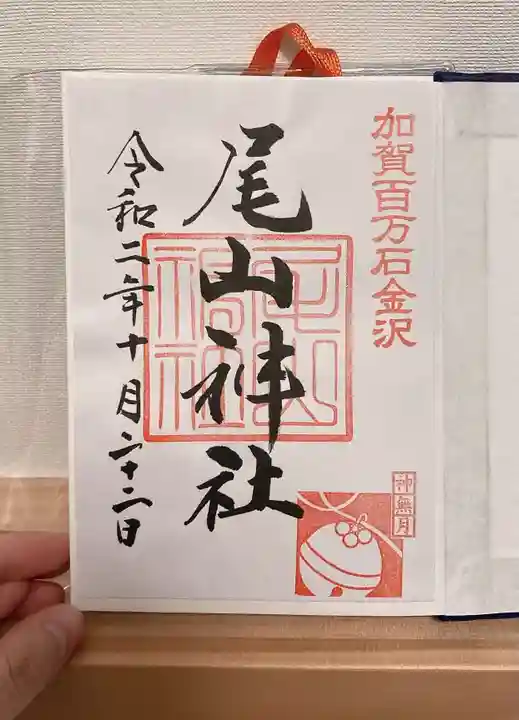 加賀百万石金沢
尾山神社
尾山神社
令和二年十月二十二日
神無月